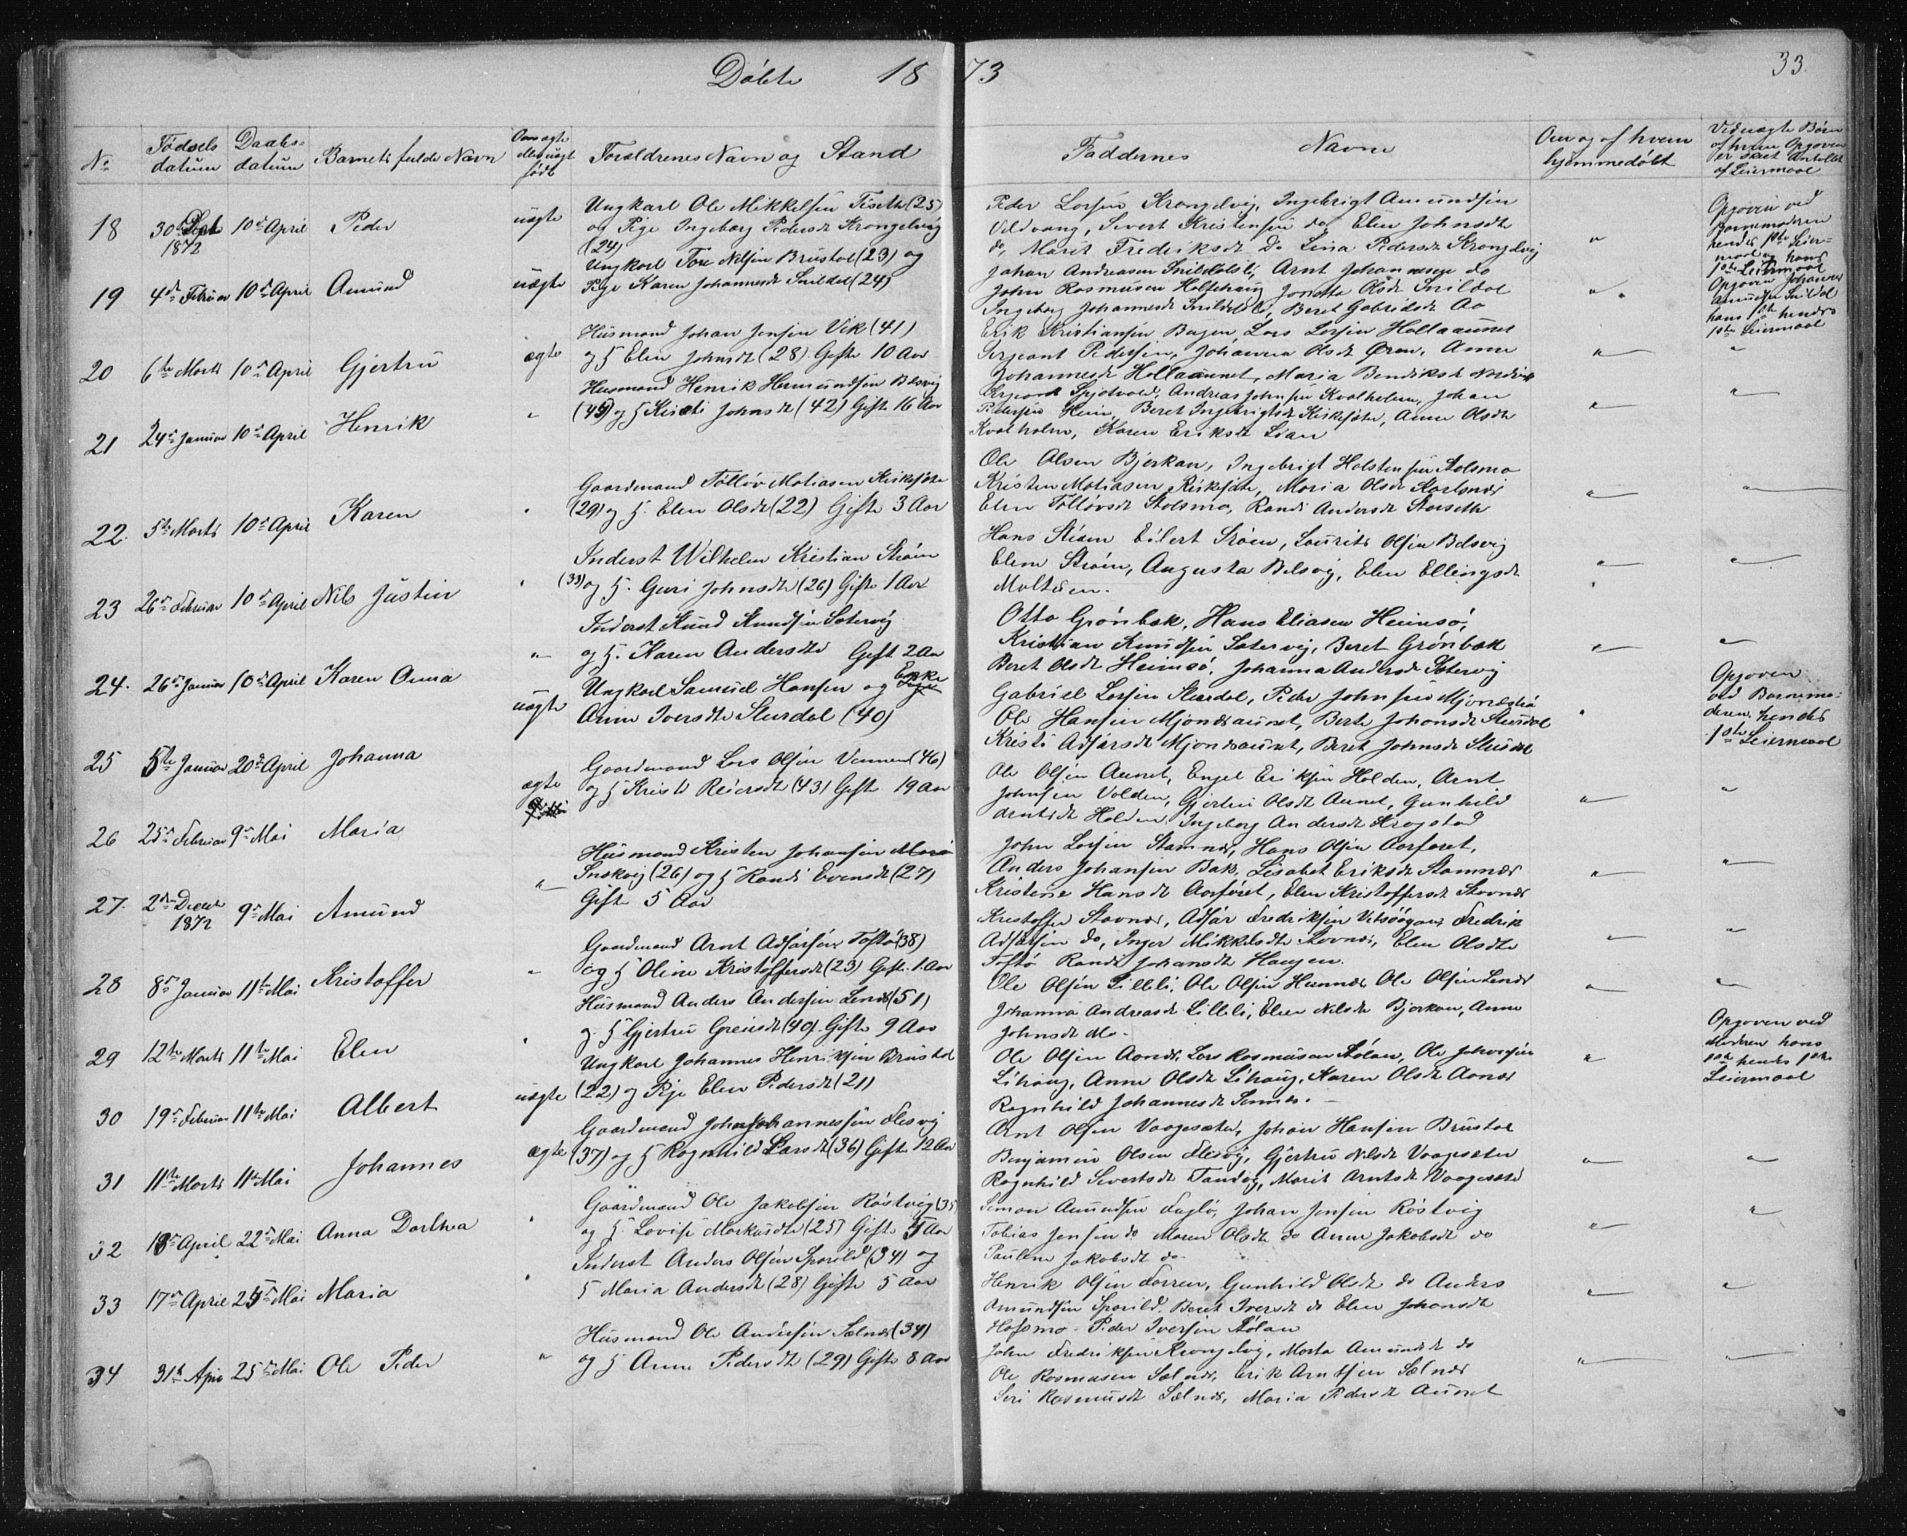 Döbte 1873
33.
No
Födsels datum
Daabs- datum
Barnets fulde Navn
Om ægte eller uægte født
Forældrenes Navn og Stand
Faddernes Navne
Om og af hvem hjemmedøbt
Ved uægte Børn af hvem Opgaven er skeet Antallet af Leiermaal
18
30te Sept 1872
10de April
Peder
uægte
Ungkarl Ole Mikkelsen Tiseth (25)
og Pige Ingeborg Pedersdt Krongelvåg
(24)
Peder Larsen Krongelvig, Ingebrigt Amundsen
Sivert Kristensen do, Elen Johnsdt
do, Marit Frederiksdt do Lena Pedersdt Krongelvig
Opgaven ved
Barnemoderen
hendes 1ste Leier-
maal og hans
1ste Leiermaal
19
4de Februar
10de April
Amund
uægte
Ungkarl Tore Nilsen Brustøl (23) og
Pige Karen Johannesdt Snildal (24)
Johan Andreasen Snildalsli, Arnt Johannesen do
John Rasmusen Holtehaug Jonetta Olsdt Snildal
Ingeborg Johannesdt Snildalsli, Beret Gabrielsdt Aa
Opgaven Johannes
Amundsen Snildal
hans 1ste hendes
1ste Leiermaal
20
6te Marts
10de April
Gjertru
ægte
Husmand Johan Jensen Vik (41)
og H Elen Johnsdt (28) Gifte 10 Aar
Erik Kristiansen Bugen, Lars Larsen Hollaaunet
Sergeant Pedersen, Johanna Olsdt Øren, Anne
Johannesdt Hollaaunet, Maria Bendiksdt Nordvik
21
24de Januar
10de April
Henrik
"
Husmand Henrik Hermundsen Belsvig
(45) og H Kirsti Johnsdt (42) Gifte 16 Aar
Sergeant Spjotvold, Andreas Johnsen Kvalholm, Johan
Pedersen Heim, Beret Ingebrigtsdt Kirksæter, Anne Olsdt
Kvalholm, Karen Eriksdt Lian
22.
5te Marts
10de April
Karen
"
Gaardmand Tolløv Matiasen Kirksæter
(29) og H. Elen Olsdt (22) Gifte 3 Aar
Ole Olsen Bjerkan, Ingebrigt Holstensen Stolsmo
Kristen Matiasen Kirksæter, Maria Olsdt
Elen Tolløvsdt Stolsmo, Randi Andersdt Storseth
23
26de Februar
10de April
Nils Justin
"
Inderst Wilhelm Kristian Strøm
(33) og H. Guri Johnsdt (26) Gifte 1 Aar
Hans Strøm Eilert Strøm, Laurits Olsen Belsvig
Elen Strøm, Augusta Belsvig, Elen Ellingsdt
24.
26de Januar
10de April
Karen Anna
"
Inderst Knud Knudsen Sætervig
og H. Karen Andersdt Gift 2 Aar
Otto Grönbæk, Hans Eliasen Heimsö,
Kristian Knudsen Sætervig, Beret Grönbæk
Beret Olsdt Heimsö, Johanna Andersdt Sætervig
25
5te Januar
20de April
Johanna
uægte
Ungkarl Samuel Hansen og Enke
Anne Iversdt Slurdal (40)
Gabriel Larsen Slurdal, Peder Johnsen
Ole Hansen Mjønesaunet, Berte Johansdt Slurdal
Kristi Adsersdt Mjønesaunet, Beret Johnsdt Slurdal
Opgaven
ved Barnemo-
deren, hendes
1ste Leiermaal
26
25de Februar
9de Mai
Maria
ægte
Gaardmand Lars Olsen Vennem (46)
og H Kristi Reiersdt (43) Gifte 19 Aar
Ole Olsen Aunet, Engel Eriksen Holden, Arnt
Johnsen Volden, Gjertru Olsdt Aunet, Gunhild
Arntsdt Holden, Ingeborg Andersdt Krogstad
27.
2den Decbr 1872
9de Mai
Amund
"
Husmand Kristen Johansen
(26) og H Randi Evensdt (27)
Gift 5 Aar
John Larsen Stamnes, Hans Olsen Aarfaret,
Anders Johansen Bak, Lisabet Eriksdt Stamnes
Kristense Hansdt Aarføret, Elen Kristoffersdt Stavnes
28
8de Januar
11te Mai
Kristoffer
"
Gaardmand Arnt Adsersen Taftø (38)
og H Oline Kristoffersdt (23) Gift. 1 Aar
Kristoffer Stavnes, Adser Fredriksen Fredrik
Adsersen do, Inger Mikkelsdt Stavnes, Elen Olsdt
Taftø Randi Johansdt Haugen.
29
12te Marts
11te Mai
Elen
"
Husmand Anders Andersen Lenes (51)
og H Gjertru Greisdt (40) Gifte 9 Aar
Ole Olsen Lilleli, Ole Olsen Hennes, Ole Olsen Lenes
Johanna Andreasdt Lilleli, Elen Nilsdt Bjerkan, Anne
Johnsdt Mo-
30
19de Februar
11te Mai
Albert
uægte
Ungkarl Johannes Henriksen Brustøl
(22) og Pige Elen Pedersdt (21)
Ole Olsen Aanes, Lars Rasmusen Aølan, Ole Johansen
Lihaug, Anne Olsdt Lihaug, Karen Olsdt Aanes
Ragnhild Johannesdt
Opgaven ved
Moderen hans
1ste hendes 1ste
Leiermaal
31
11te Marts
11te Mai
Johannes
ægte
Gaardmand John Johannessen Flesvig
(37) og H Ragnhild Larsdt (36) Gifte 12 Aar
Arnt Olsen Vaagesæter, Johan Hansen Brustøl
Benjamin Olsen Flesvig, Gjertru Nilsdt Vaagesæter
Ragnhild Sivertsdt Marit Arntsdt Vaagesæter
32
13de April
22de Mai
Anna Dorthea
"
Gaardmand Ole Jakobsen Røstvig (35
og H. Lovise Markusdt (25) Gifte 5 Aar
Simon Amundsen Fuglø, Johan Jensen Røstvig
Tobias Jensen do Maren Olsdt do Anne Jakobsdt do
Pauline Jakobsdt do.
33
17de April
25de Mai
Maria
"
Inderst Anders Olsen Sporild (34) og
H Maria Andersdt (28) Gifte 5 Aar
Henrik Olsen Forren, Gunhild Olsdt do Anders
Amundsen Sporild, Beret Iversdt do Elen Johansdt
Hafsmo - Peder Iversen Aølan
34
31te Apr
25de Mai
Ole Peder
"
Husmand Ole Andersen Sælnes (34)
og H Anne Pedersdt (29) Gifte 8 Aar
John Fredriksen Krongelvg, Marta Amundsdt do
Ole Rasmusen Sælnes, Erik Arntsen Sælnes
Seri Rasmusdt Sælnes, Maria Pedersdt Aunet